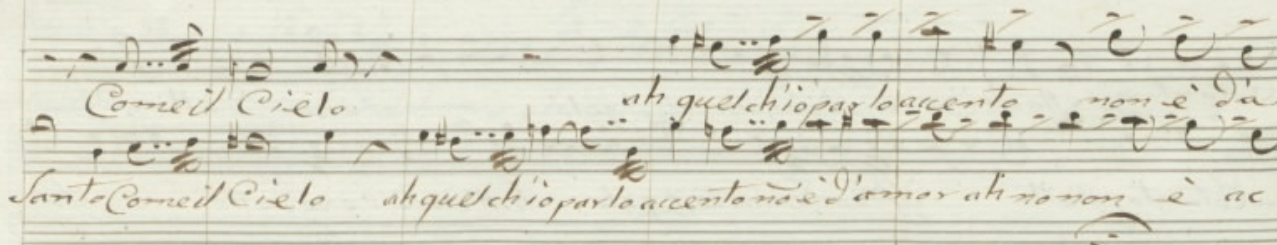 Come il Cielo ah quel ch'io parlo accento non è d'a
Santo Come il Cielo ah quel ch'io parlo accento nō è d'amor ah no non è ac